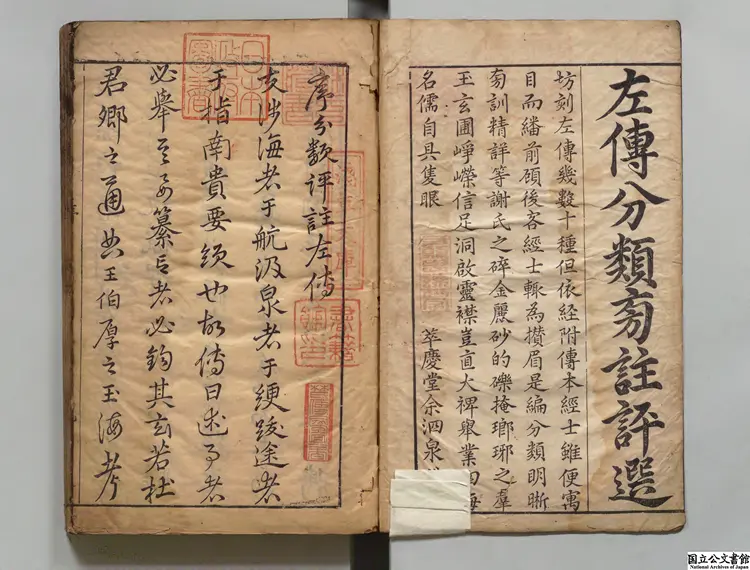 左傳分類旁註評選
坊刻左傳幾數十種但依経附傳本經士雖便寓
目而繙前碩後客經士輙為攅眉是編分類明晰
旁訓精詳等謝氏之碎金應砂的礫掩瑯琊之羣
玉玄圃崢嶸信足洞啟靈襟豈直大裨舉業海
名儒自具隻眼
萃慶堂余泗泉
序分類評註左傳
夫涉海者于航汲泉者于綆跋途者
于指南貴要領也故傳曰述事者
必舉其要纂言者必鈎其玄若杜
君卿之通典王伯厚之玉海考
日本政府圖書
国立公文書館
National Archives of Japan